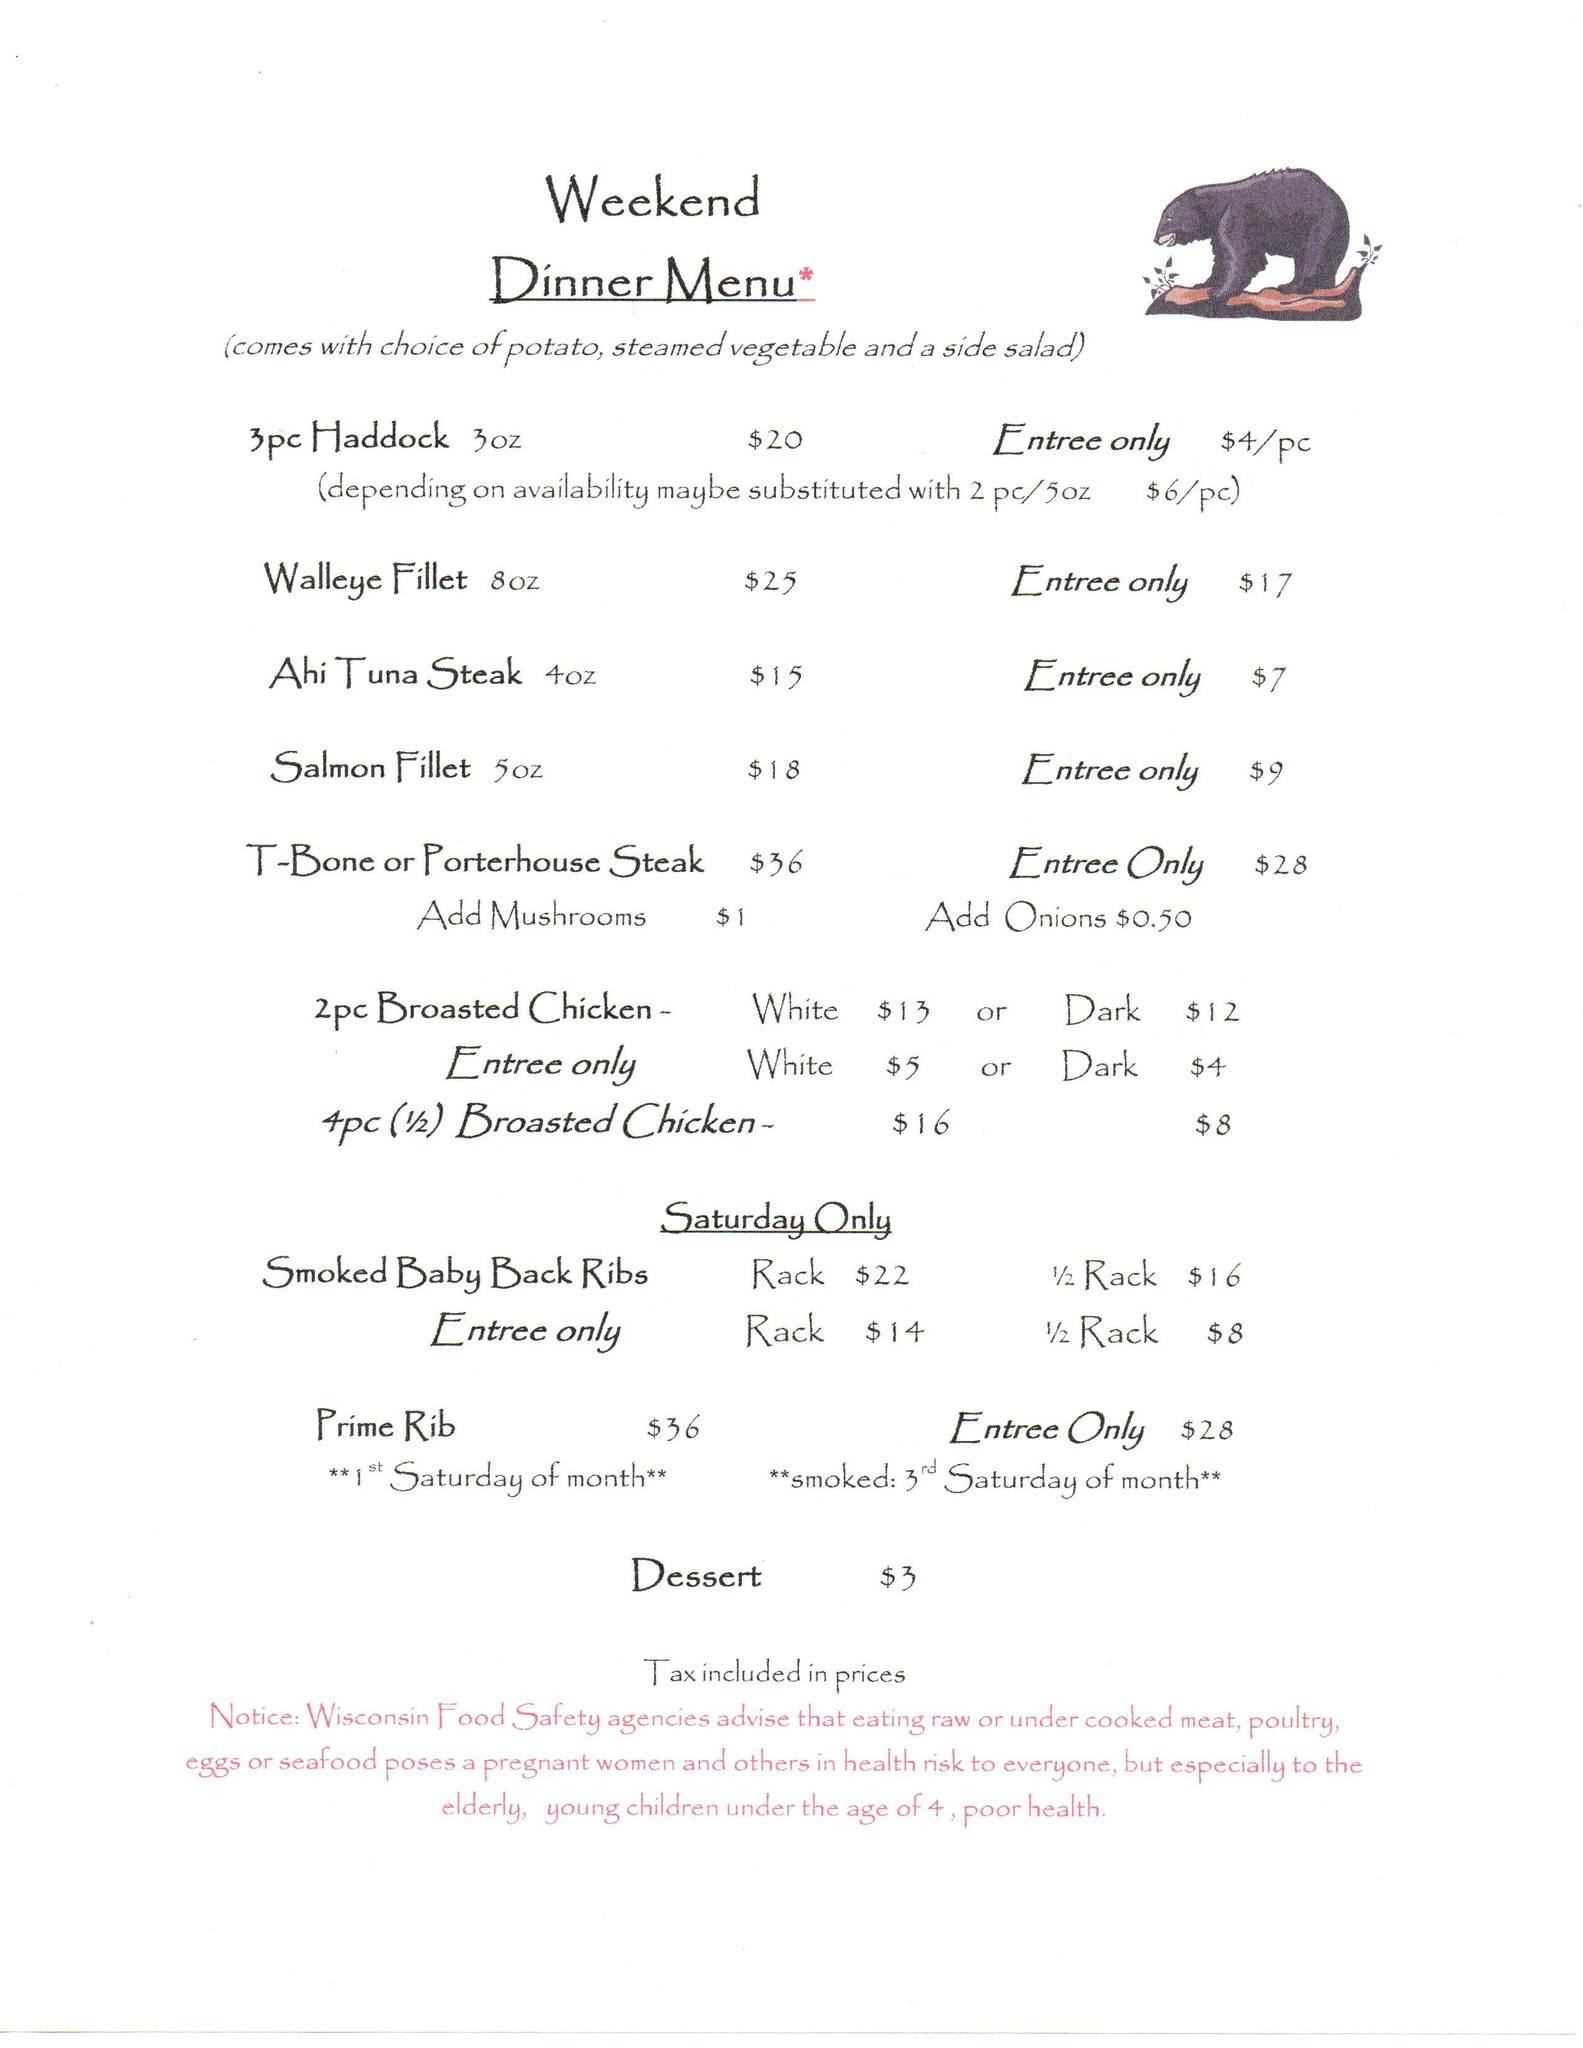 Weekend
Dinner Menu*
(comes with choice of potato, steamed vegetable and a side salad)
3pc Haddock 3oz $20 Entree only $4/pc
(depending on availability maybe substituted with 2 pc/5oz $6/pc)
Walleye Fillet 8oz $25 Entree only $17
Ahi Tuna Steak 4oz $15 Entree only $7
Salmon Fillet 5oz $18 Entree only $9
T-Bone or Porterhouse Steak $36 Entree Only $28
Add Mushrooms $1 Add Onions $0.50
2pc Broasted Chicken - White $13 or Dark $12
Entree only White $5 or Dark $4
4pc (½) Broasted Chicken - $16 $8
Saturday Only
Smoked Baby Back Ribs Rack $22 ½ Rack $16
Entree only Rack $14 ½ Rack $8
Prime Rib $36 Entree Only $28
**1st Saturday of month** **smoked: 3rd Saturday of month**
Dessert $3
Tax included in prices
Notice: Wisconsin Food Safety agencies advise that eating raw or under cooked meat, poultry,
eggs or seafood poses a pregnant women and others in health risk to everyone, but especially to the
elderly, young children under the age of 4 , poor health.